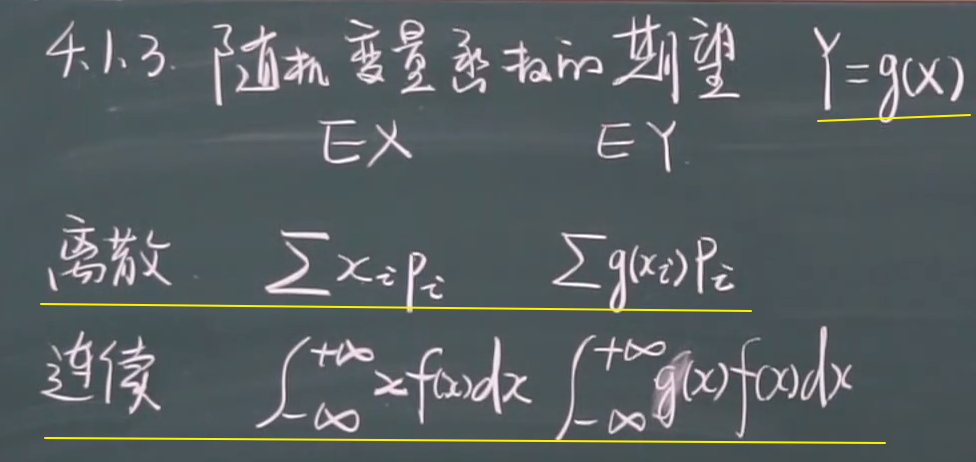 4.1.3. 随机变量函数的期望 Y=g(X)
EX EY
离散 ∑xᵢpᵢ ∑g(xᵢ)pᵢ
连续 ∫₋∞⁺∞ xf(x)dx ∫₋∞⁺∞ g(x)f(x)dx